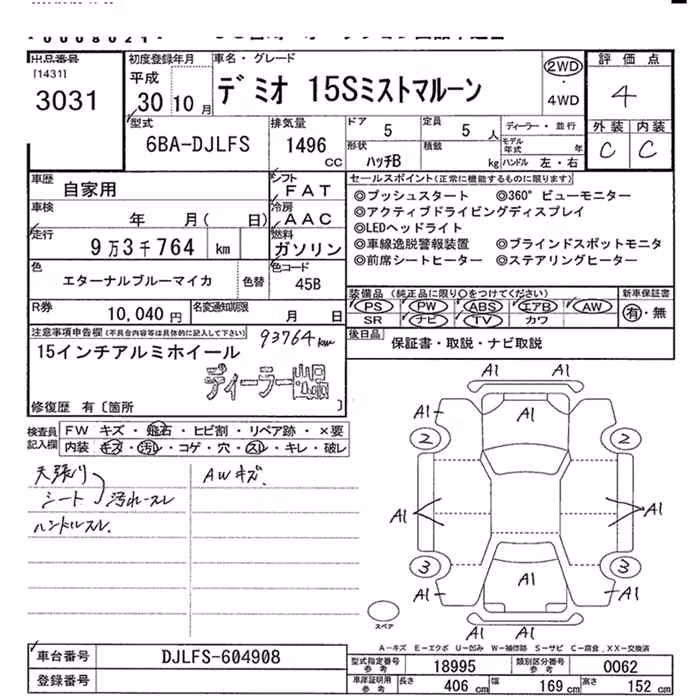 出品番号
[1431]
3031
初度登録年月
平成
30年10月
車名・グレード
デミオ 15Sミストマルーン
2WD
・
4WD
評価点
4
外装 内装
C C
型式
6BA-DJLFS
排気量
1496
CC
ドア
5
定員
5 人
形状
ハッチB
積載
kg
ディーラー・並行
モデル年式 年
ハンドル 左・右
車歴
自家用
シフト
FAT
車検
年 月( 日)
冷房
AAC
走行
9万3千764 km
燃料
ガソリン
色
エターナルブルーマイカ
色替
色コード
45B
R券
10,040 円
名変通知期限
月 日
セールスポイント(正常に機能するものに限ります)
◎プッシュスタート ◎360°ビューモニター
◎アクティブドライビングディスプレイ
◎LEDヘッドライト
◎車線逸脱警報装置 ◎ブラインドスポットモニタ
◎前席シートヒーター ◎ステアリングヒーター
装備品 (純正品に限り○をつけてください)
PS PW ABS エアB AW
SR ナビ TV カワ
新車保証書
有・無
後日品
保証書・取説・ナビ取説
注意事項申告欄(不具合内容等は具体的に記入して下さい)
93764km
15インチアルミホイール
ディーラー
修復歴 有〔箇所 〕
検査員
記入欄
FW キズ・飛石・ヒビ割・リペア跡・×要
内装 キズ・汚れ・コゲ・穴・スレ・キレ・破レ
天張り
シート 汚れ・スレ
ハンドルスレ.
AWキズ.
A1 A1
A1 A1 A1
2 2
A1 A1
A1
3 3
A1 A1
A1 A1
スペア
A-キズ E-エクボ U-凹み W-補修跡 S-サビ C-腐食, XX-交換済
車台番号
DJLFS-604908
登録番号
型式指定番号
参考
18995
類別区分番号
参考
0062
車庫証明用
参考
長さ
406 cm
幅
169 cm
高さ
152 cm